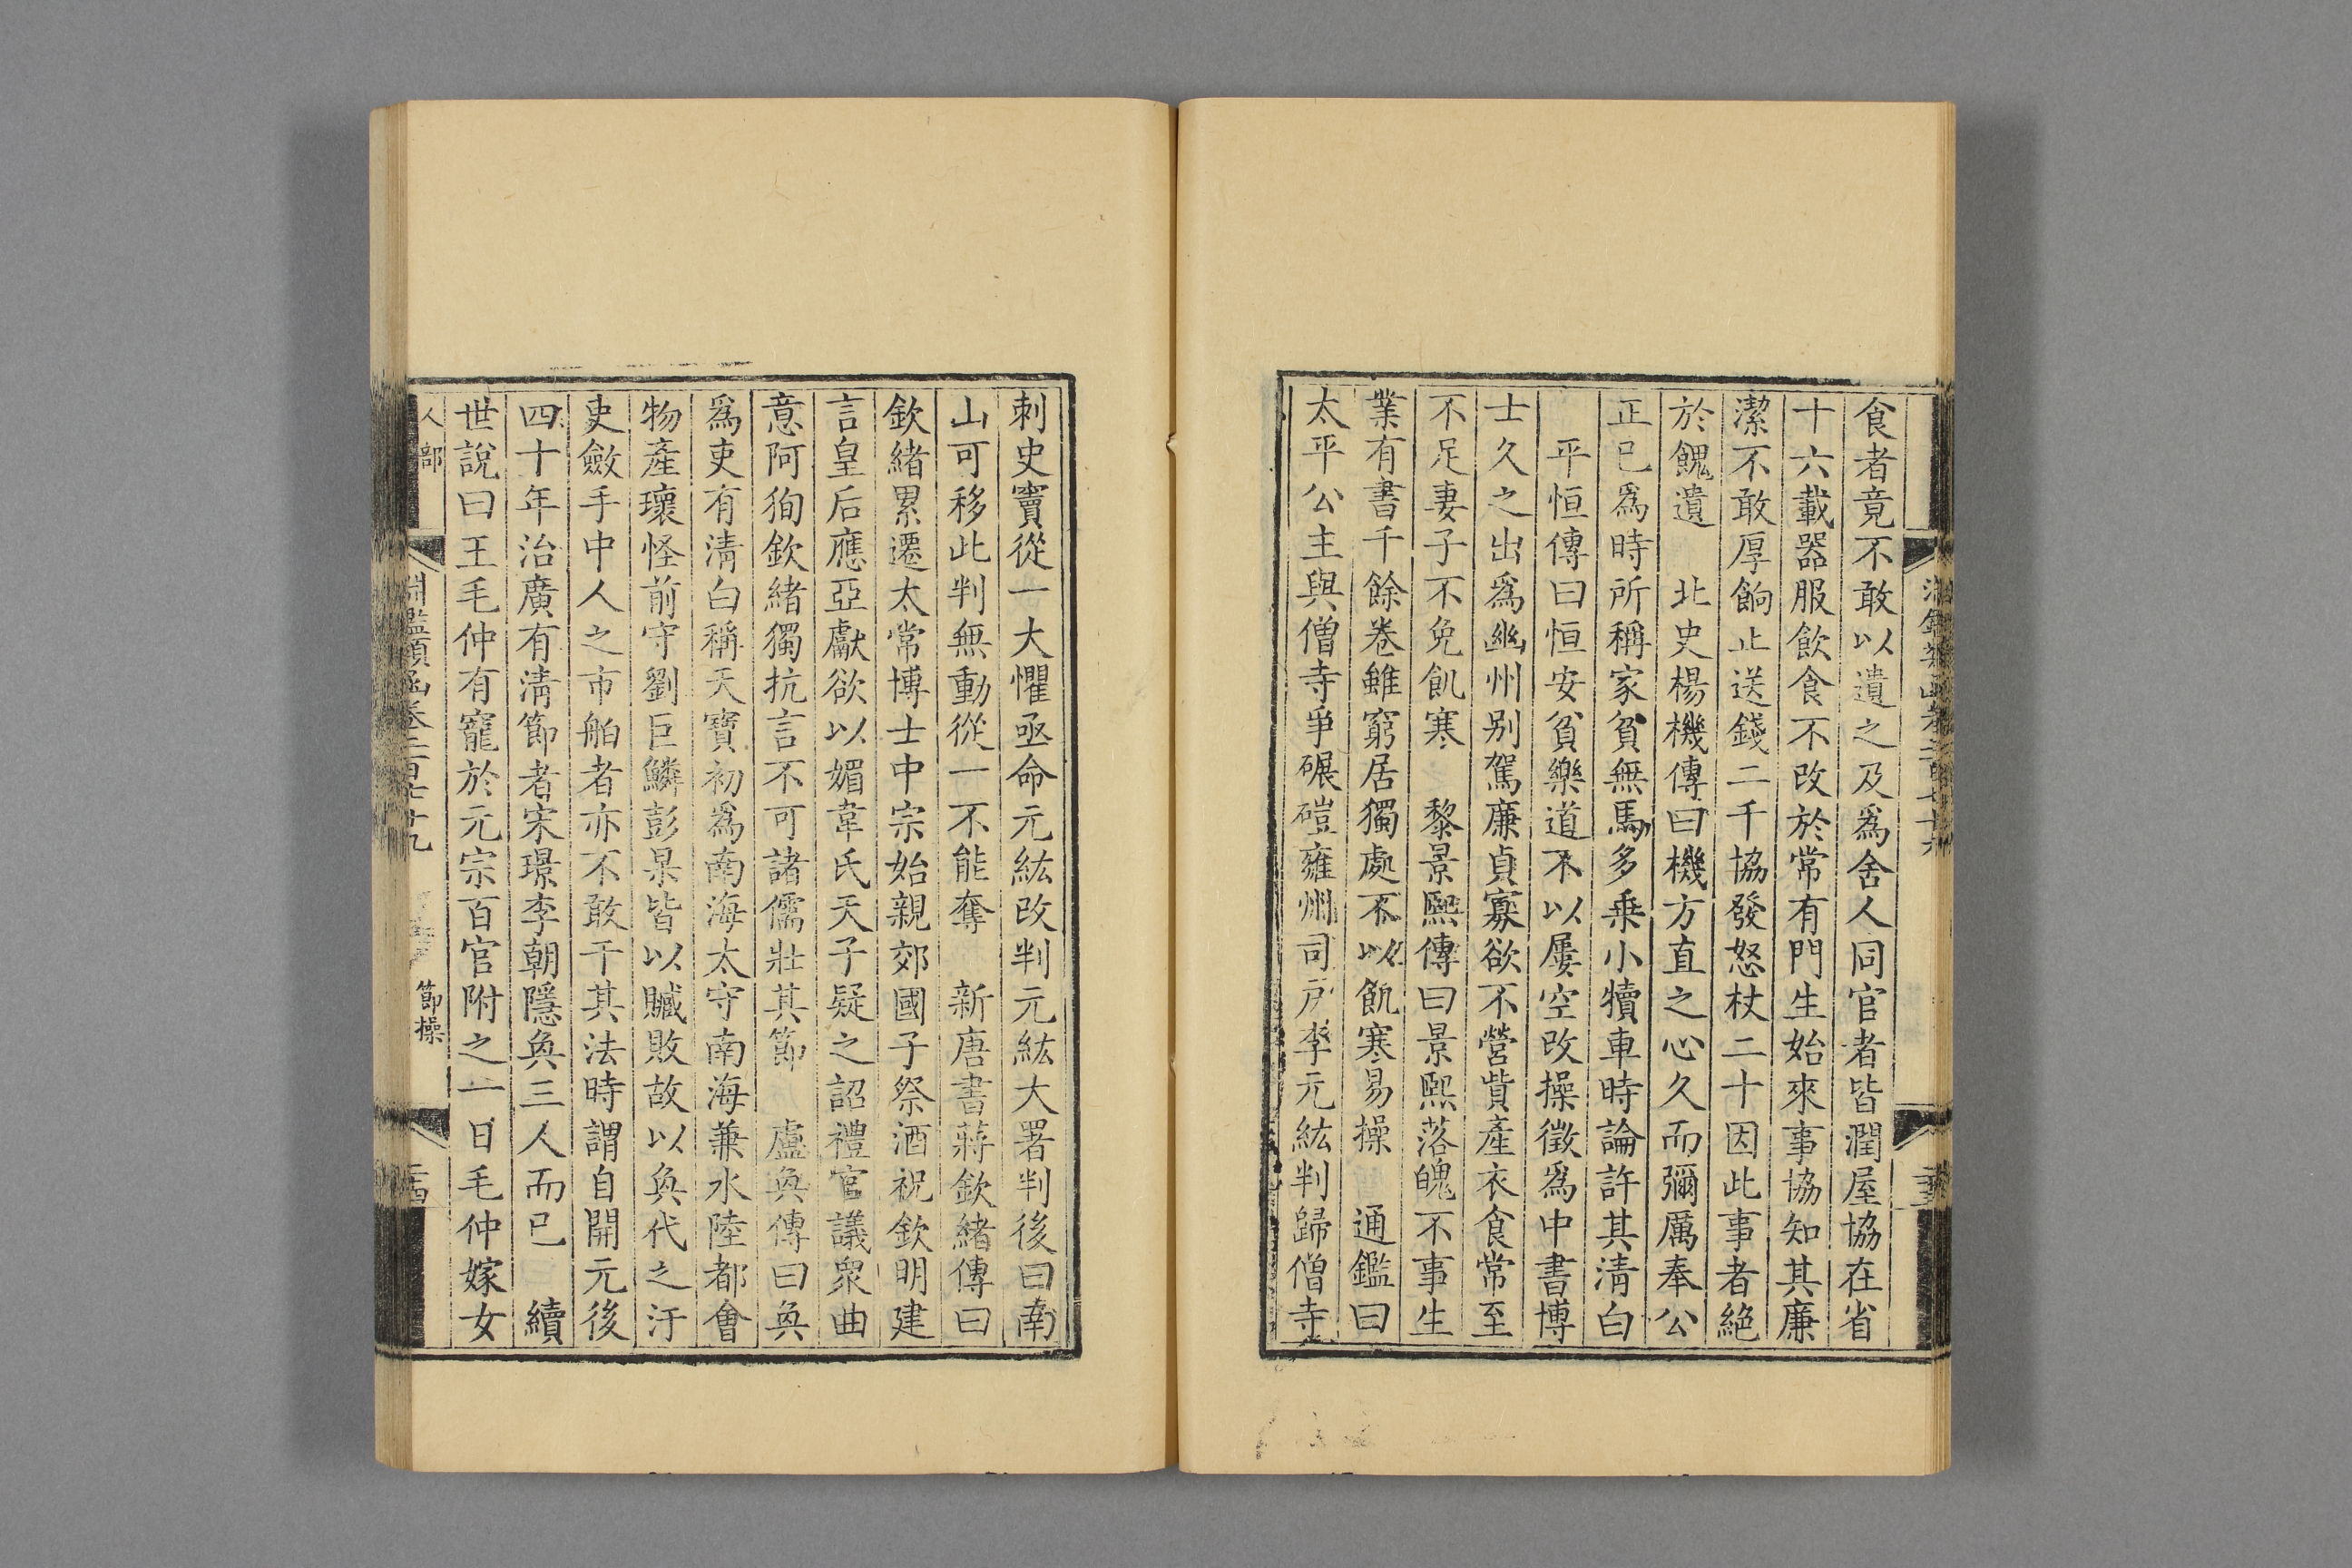 食者竟不敢以遺之及爲舍人同官者皆潤屋協在省
十六載器服飲食不改於常有門生始來事協知其廉
潔不敢厚餉止送錢二千協發怒杖二十因此事者絕
於餽遺　北史楊機傳曰機方直之心久而彌厲奉公
正己爲時所稱家貧無馬多乗小犢車時論許其淸白
平恒傳曰恒安貧樂道不以屢空改操徵爲中書博
士久之出爲幽州别駕廉貞寡欲不營貲產衣食常至
不足妻子不免飢寒　黎景熙傳曰景熙落魄不事生
業有書千餘卷雖窮居獨處不以飢寒易操　通鑑曰
太平公主與僧寺爭碾磑雍州司戶李元紘判歸僧寺
刺史竇從一大懼亟命元紘改判元紘大署判後曰南
山可移此判無動從一不能奪　新唐書蔣欽緒傳曰
欽緒累遷太常博士中宗始親郊國子祭酒祝欽明建
言皇后應亞獻欲以媚韋氏天子疑之詔禮官議衆曲
意阿狥欽緒獨抗言不可諸儒壯其節　盧奐傳曰奐
爲吏有淸白稱天寶初爲南海太守南海兼水陸都會
物產瓌怪前守劉巨鱗彭杲皆以贓敗故以奐代之汙
吏斂手中人之市舶者亦不敢干其法時謂自開元後
四十年治廣有淸節者宋璟李朝隱奐三人而已　續
世說曰王毛仲有寵於元宗百官附之一日毛仲嫁女
人部
淵鑑類函卷二百七十九
節操